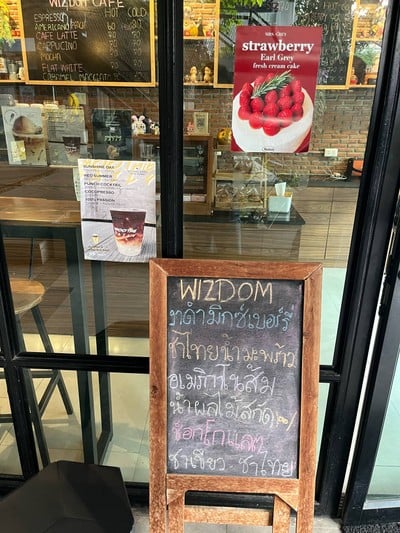 WIZDOM CAFE
HOT COLD
ESPRESSO
AMERICANO
CAFE LATTE
CAPPUCCINO
MOCHA
FLAT WHITE
CARAMEL MACCHIATO
strawberry
Earl Grey
fresh cream cake
SUNSHINE DAY
RED SUMMER
PUNCH COCKTAIL
COCOPRESSO
100% PASSION
WIZDOM
ชาไทยน้ำมะพร้าว
อเมริกาโน่ส้ม
น้ำผลไม้สกัด
ช็อกโกแลต
ชาเขียว ชาไทย